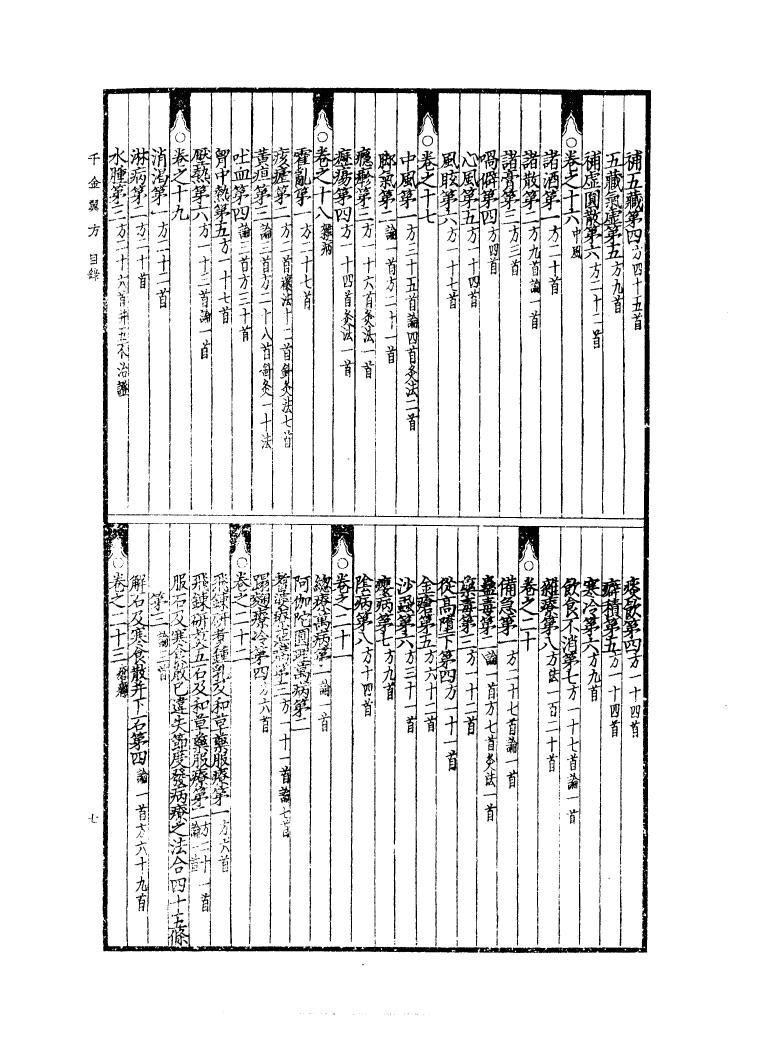 補五藏第四方四十五首
五藏氣虛第五方九首
補虛圓散第六方二十二首
卷之十六中風
諸酒第一方二十首
諸散第二方九首論一首
諸膏第三方三首
喎僻第四方四首
心風第五方一十四首
風眩第六方一十七首
卷之十七
中風第一方三十五首論四首灸法二首
腳氣第二論一首方二十一首
癮疹第三方一十六首灸法一首
癧瘍第四方一十四首灸法一首
卷之十八雜病
霍亂第一方二十七首
痎瘧第二方二首禳法十二首針灸法七首
黃疸第三論三首方二十八首針灸一十法
吐血第四論三首方三十首
胷中熱第五方一十七首
壓熱第六方一十三首論一首
卷之十九
消渴第一方二十二首
淋病第二方二十首
水腫第三方二十六首并五不治證
千金翼方 目錄
痰飲第四方一十四首
癖積第五方一十四首
寒冷第六方九首
飲食不消第七方一十七首論一首
雜療第八方法一百二十首
卷之二十
備急第一方二十七首論一首
蠱毒第二論一首方七首灸法一首
藥毒第三方一十二首
從高墮下第四方一十一首
金瘡第五方六十二首
沙蝨第六方三十一首
癭病第七方九首
陰病第八方十四首
卷之二十一
總療萬病第一論一首
阿伽陀圓理萬病第二
耆婆療惡病第三方一十一首論七首
蹋麴療冷第四方六首
卷之二十二
飛鍊研煑鍾乳及和草藥服療第一方六首
飛鍊研煑五石及和草藥服療第二方二十一首論一首
服石及寒食散已違失節度發病療之法合四十五條
第三論二首
解石及寒食散并下石第四論一首方六十九首
卷之二十三瘡癰
七